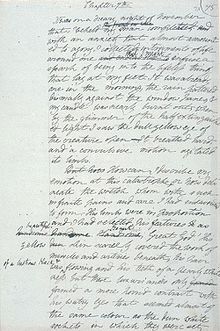 Chapter 7th
It was on a dreary night of November
that I beheld my man completed
with an anxiety that almost amounted
to agony I collected instruments of life
around me that I might infuse a
spark of being into the lifeless thing
that lay at my feet. It was already
one in the morning, the rain pattered
dismally against the window panes, &
my candle was nearly burnt out, when
by the glimmer of the half extinguished
light I saw the dull yellow eye of
the creature open. It breathed hard,
and a convulsive motion agitated
its limbs.
But how can I describe my
emotion at this catastrophe; or how deli-
neate the wretch whom with such
infinite pains and care I had endeavoured
to form. His limbs were in proportion
and I had selected his features as
handsome
yellow skin scarcely covered the work of
muscles and arteries beneath; his hair
of a lustrous black &
was flowing and his teeth of a pearly white
ness but these luxuriances only
formed a more horrid contrast with
his watry eyes that seemed almost of
the same colour as the dun white
sockets in which they were set